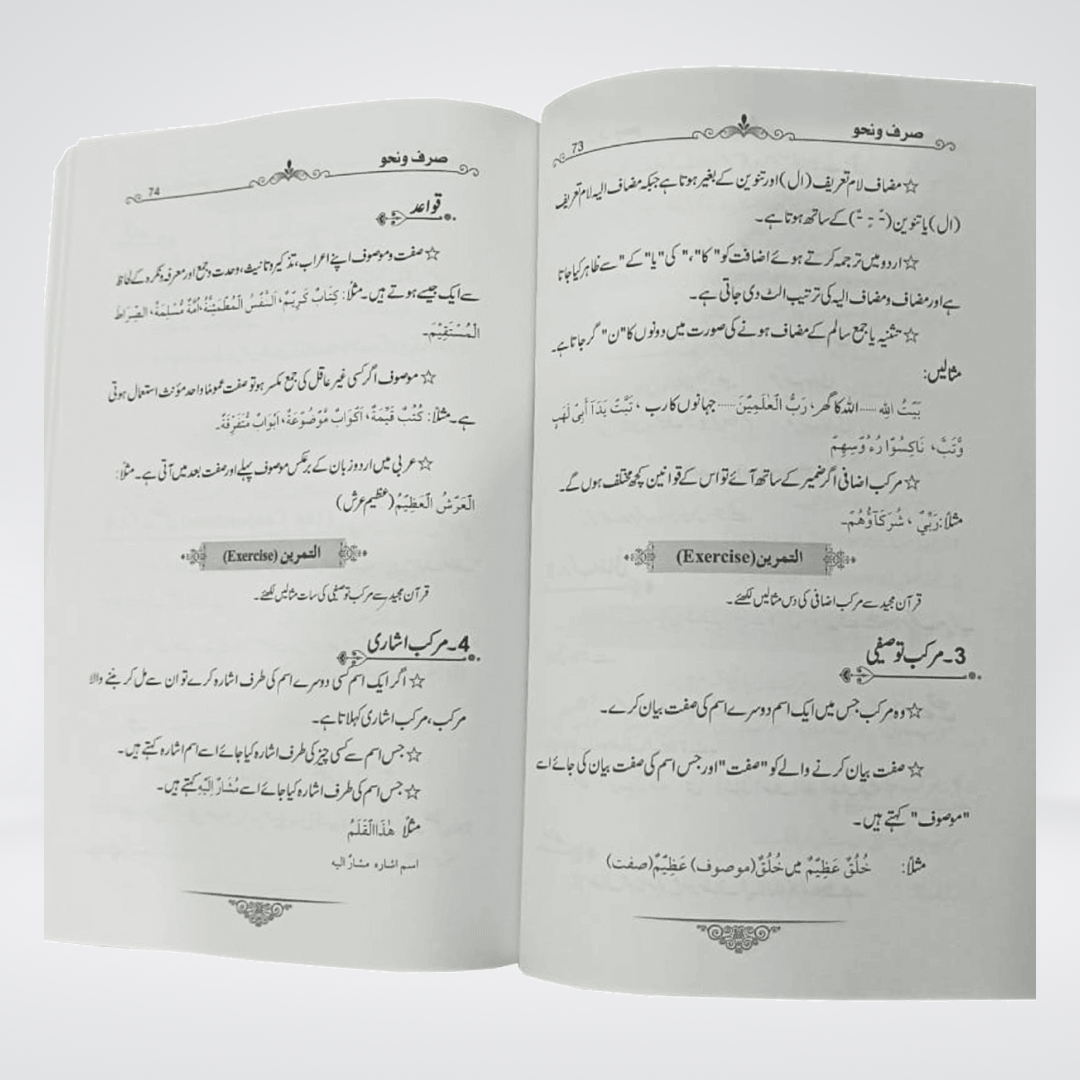 صرف ونحو
73
☆ مضاف لام تعریف (ال) اور تنوین کے بغیر ہوتا ہے جبکہ مضاف الیہ لام تعریف
(ال) یا تنوین (ـً ـٍ ـٌ) کے ساتھ ہوتا ہے۔
☆ اردو میں ترجمہ کرتے ہوئے اضافت کو "کا"، "کی" یا "کے" سے ظاہر کیا جاتا
ہے اور مضاف و مضاف الیہ کی ترتیب الٹ دی جاتی ہے۔
☆ تثنیہ یا جمع سالم کے مضاف ہونے کی صورت میں دونوں کا "ن" گر جاتا ہے۔
مثالیں:
بَيْتُ اللهِ ...... اللہ کا گھر، رَبُّ الْعٰلَمِيْنَ ...... جہانوں کا رب ، تَبَّتْ يَدَآ أَبِىْ لَهَبٍ
وَّتَبَّ، نَاكِسُوْا رُءُوْسِهِمْ
☆ مرکب اضافی اگر ضمیر کے ساتھ آئے تو اس کے قوانین کچھ مختلف ہوں گے۔
مثلاً: رَبِّيْ ، شُرَكَآؤُهُمْ۔
التمرین (Exercise)
قرآن مجید سے مرکب اضافی کی دس مثالیں لکھئے۔
3۔ مرکب توصیفی
☆ وہ مرکب جس میں ایک اسم دوسرے اسم کی صفت بیان کرے۔
☆ صفت بیان کرنے والے کو "صفت" اور جس اسم کی صفت بیان کی جائے اسے
"موصوف" کہتے ہیں۔
مثلاً: خُلُقٌ عَظِيْمٌ میں خُلُقٌ (موصوف) عَظِيْمٌ (صفت)
صرف ونحو
74
قواعد
☆ صفت و موصوف اپنے اعراب، تذکیر و تانیث، وحدت و جمع اور معرفہ و نکرہ کے لحاظ
سے ایک جیسے ہوتے ہیں۔ مثلاً: كِتَابٌ كَرِيْمٌ، اَلنَّفْسُ الْمُطْمَئِنَّةُ، اُمَّةٌ مُّسْلِمَةٌ، الصِّرَاطَ
الْمُسْتَقِيْمَ۔
☆ موصوف اگر کسی غیر عاقل کی جمع مکسر ہو تو صفت عموماً واحد مؤنث استعمال ہوتی
ہے۔ مثلاً: كُتُبٌ قَيِّمَةٌ، اَكْوَابٌ مَّوْضُوْعَةٌ، اَبْوَابٌ مُّتَفَرِّقَةٌ۔
☆ عربی میں اردو زبان کے برعکس موصوف پہلے اور صفت بعد میں آتی ہے۔ مثلاً:
الْعَرْشُ الْعَظِيْمُ (عظیم عرش)
التمرین (Exercise)
قرآن مجید سے مرکب توصیفی کی سات مثالیں لکھئے۔
4۔ مرکب اشاری
☆ اگر ایک اسم کسی دوسرے اسم کی طرف اشارہ کرے تو ان سے مل کر بننے والا
مرکب، مرکب اشاری کہلاتا ہے۔
☆ جس اسم سے کسی چیز کی طرف اشارہ کیا جائے اسے اسم اشارہ کہتے ہیں۔
☆ جس اسم کی طرف اشارہ کیا جائے اسے مُشَارٌ اِلَيْهِ کہتے ہیں۔
مثلاً هٰذَا الْقَلَمُ
اسم اشارہ مشارٌ الیہ